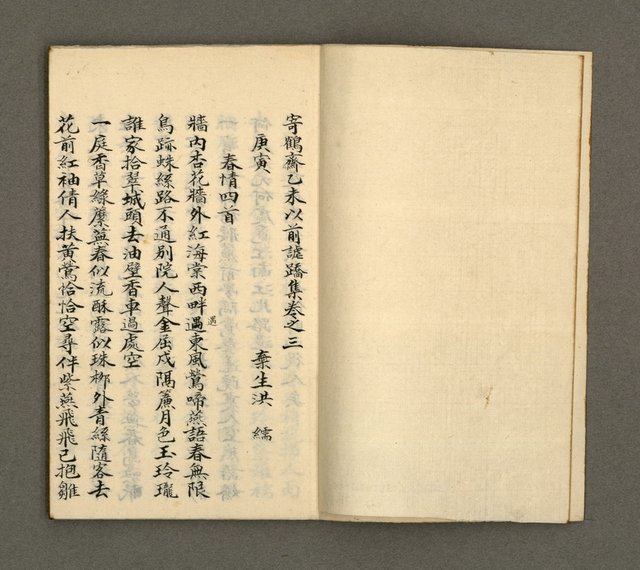 寄鶴齋乙未以前謔蹻集卷之三
棄生洪 繻
庚寅
春情四首
牆內杏花牆外紅海棠西畔遇東風鶯啼燕語春無限
鳥跡蛛絲路不通別院人聲金屈戌隔簾月色玉玲瓏
誰家拾翠城頭去油壁香車過處空
一庭香草綠蘼蕪春似流酥露似珠柳外青絲隨客去
花前紅袖倩人扶黃鶯恰恰空尋伴紫燕飛飛已抱雛